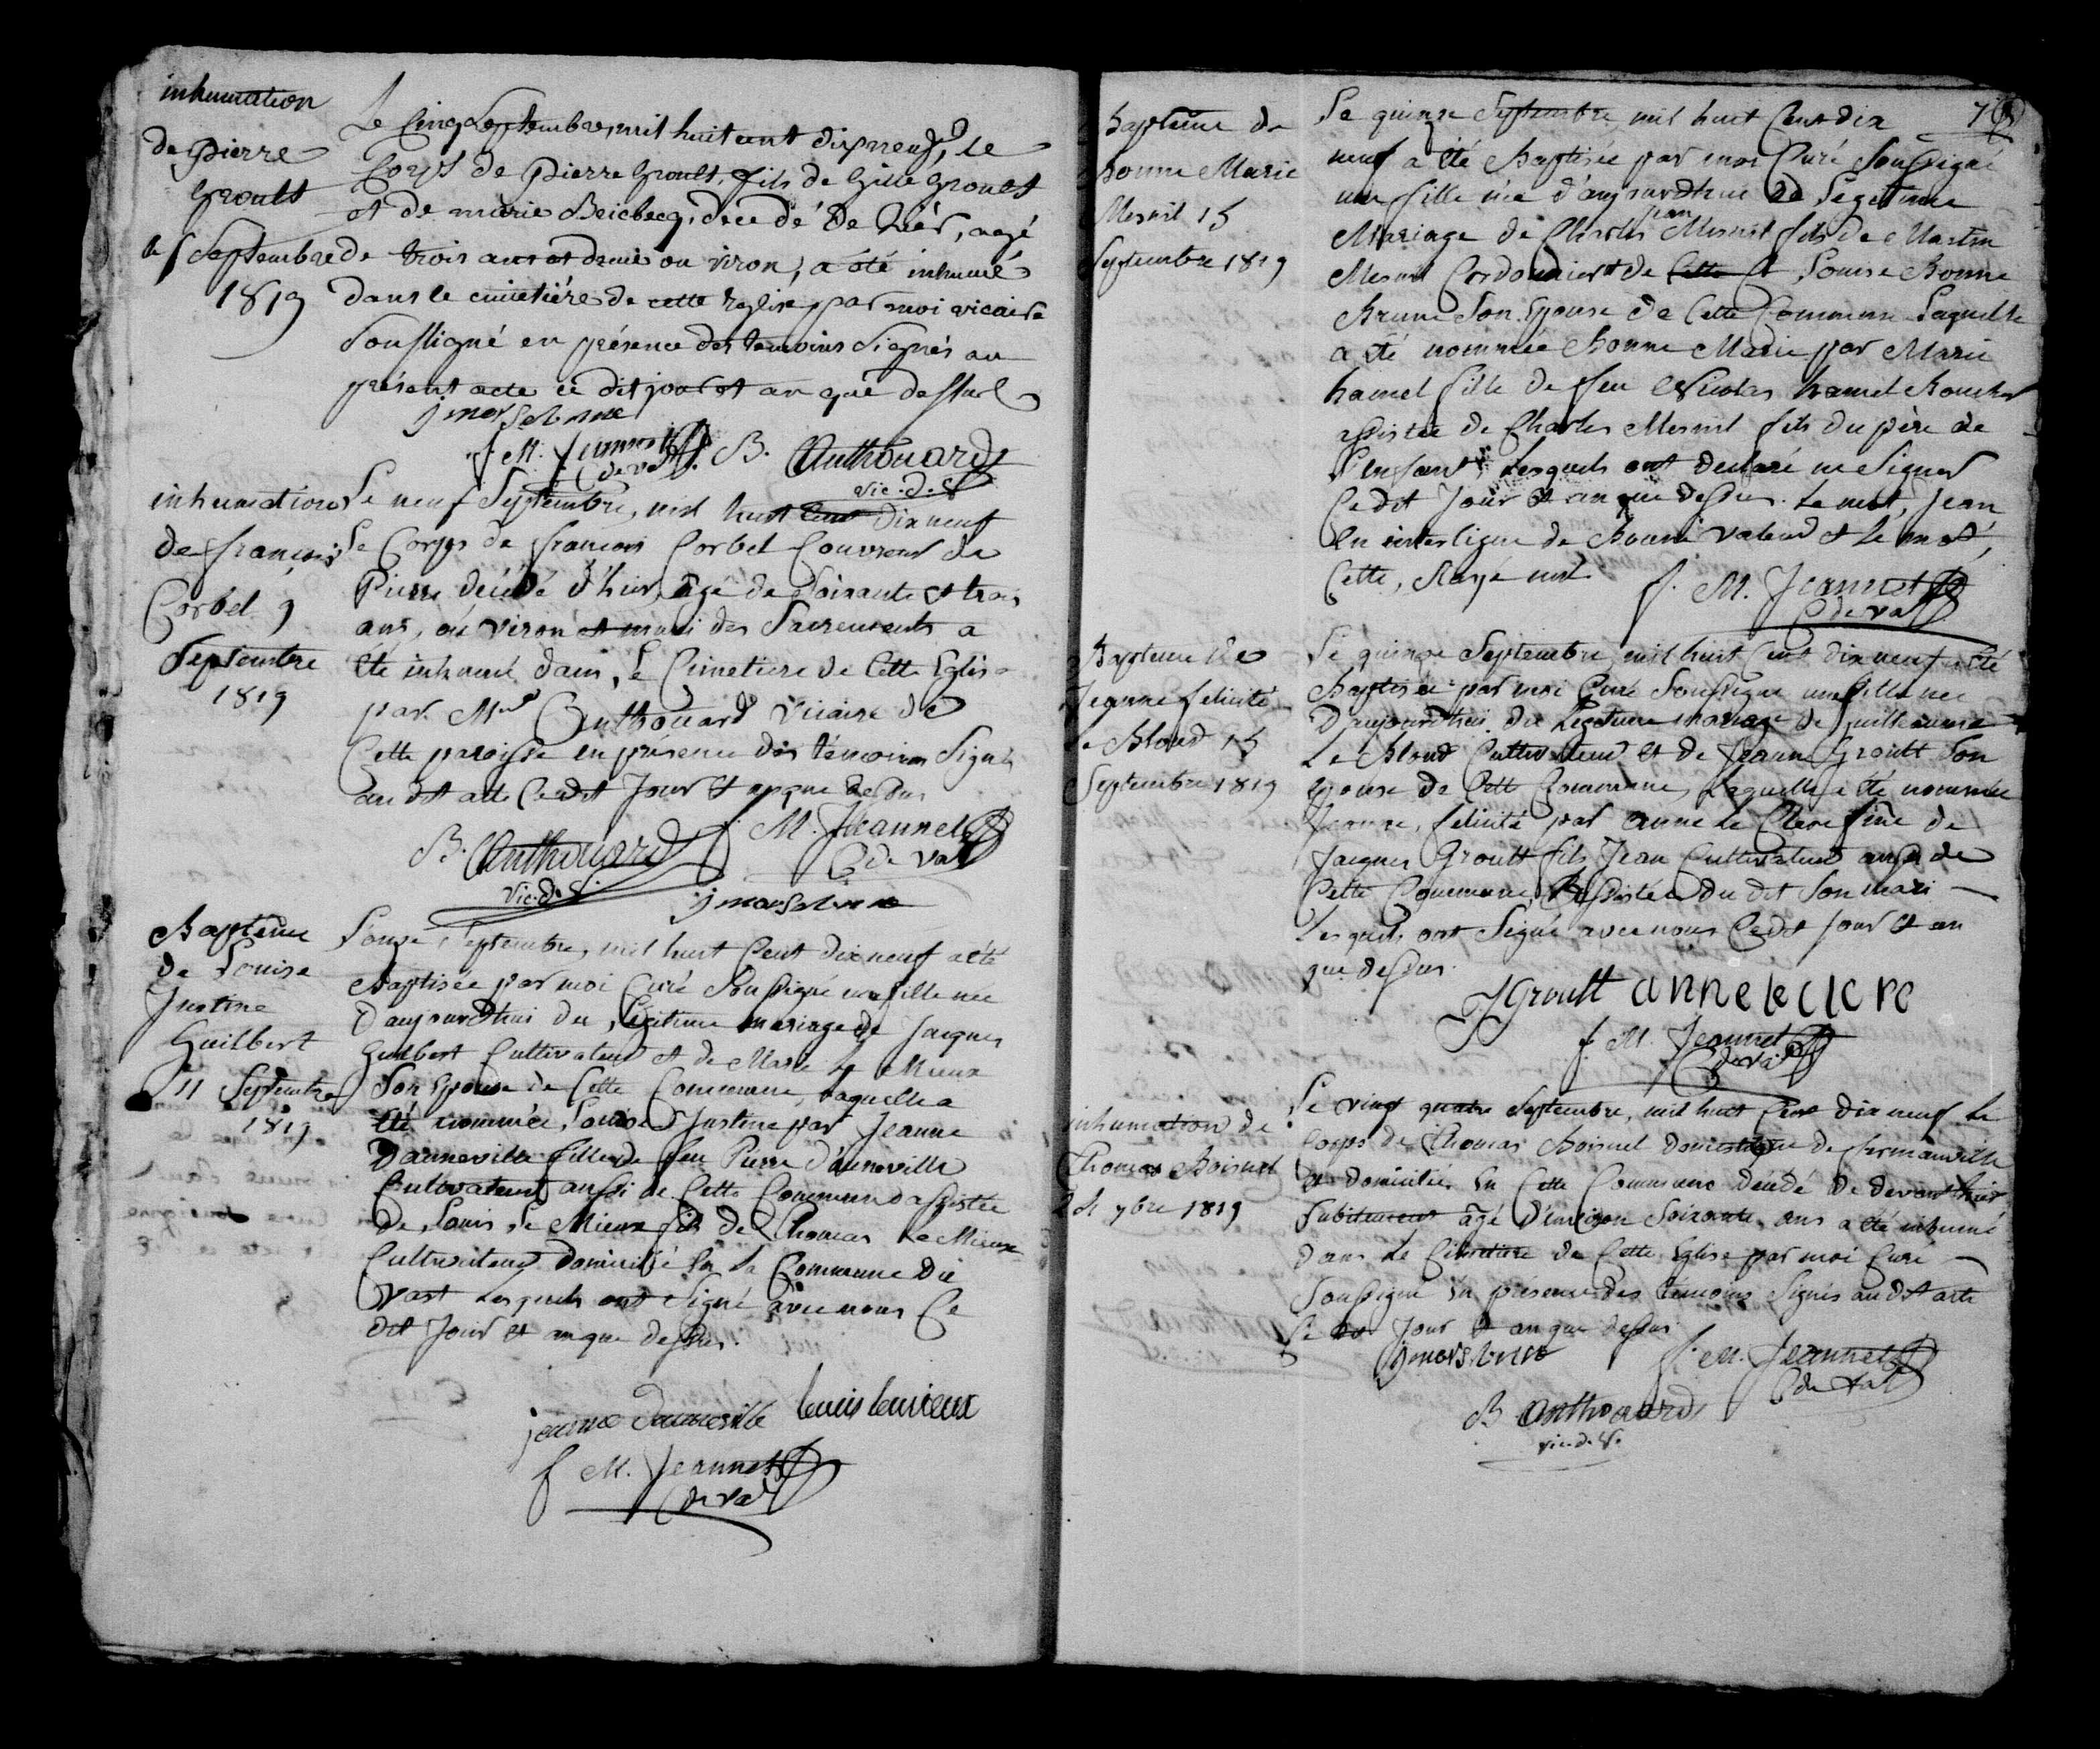 inhumation
de Pierre
Groult
le 5 Septembre
1819
Le Cinq Septembre, mil huit cent dix neuf, le
Corps de Pierre Groult, fils de Gille Groult
et de marie decedé de hier, agé
de trois ans et demie ou viron, a été inhumé
dans le cimetière de cette Eglise par moi vicaire
Soussigné en présence des temoins Signés au
présent acte ce dit jour et an que dessus
f. M. Jeannet B. Anthouard
C de Vast vic. d. V.
inhumation
de françois
Corbet 9
Septembre
1819
Le neuf Septembre, mil huit Cent Dix neuf
Le Corps de francois Corbet Couvreur de
Pierre décédé d'hier, âgé de Soixante et trois
ans, ou viron et muni des Sacrements a
été inhumé dans le Cimetiere de Cette Eglise
par Mr Anthouard Vicaire de
Cette paroisse en présence des témoins Signés
au dit acte Cedit Jour et an que dessus
B. Anthouard f M. Jeannet
Vic. d. V. C de Vast
Baptême
de Louise
Justine
Guilbert
11 Septembre
1819
L'onze Septembre, mil huit Cent dix neuf a été
Baptisée par moi Curé Soussigné une fille née
D'aujourdhui du Légitime mariage de Jacques
Guilbert Cultivateur et de Marie Le Mieux
Son Epouse de Cette Commune, laquelle a
été nommée Louise Justine par Jeanne
Danneville fille de feu Pierre d'anneville
Cultivateur aussi de Cette Commune assistée
de Louis Le Mieux fils de Thomas Le Mieux
Cultivateur domicilié En La Commune Du
Vast Lesquels ont Signé avec nous Ce
dit Jour et an que dessus.
jeanne danneville louis lemieux
f M. Jeannet
C de Vast
Baptême de
Bonne Marie
Mesnil 15
Septembre 1819
Le quinze Septembre mil huit Cent dix
neuf a été Baptisée par moi Curé Soussigné
une fille née d'aujourdhui de Légitime
Mariage de Charles Jean Mesnil fils de Martin
Mesnil Cordonnier et de Cette et Louise Bonne
Brune Son Epouse de Cette Commune Laquelle
a été nommée Bonne Marie par Marie
hamel fille de feu Nicolas hamel Boucher
assistée de Charles Mesnil fils du père de
L'enfant, Lesquels ont déclaré ne Signer
Cedit Jour et an que dessus. Le mot, Jean
En interligne de Bonne valeur et Le mot,
Cette, Rayé nul.
f. M. Jeannet
C de Vast
Bapteme de
Jeanne felicité
Le Blond 15
Septembre 1819
Le quinze Septembre mil huit Cent dix neuf a été
Baptisée par moi Curé Soussigné une fille née
D'aujourdhui du Légitime mariage de Guillaume
Le Blond Cultivateur et de Jeanne Groult Son
Epouse de Cette Commune, Laquelle a été nommée
Jeanne, felicité par anne Le Clerc fme de
Jacques Groult fils Jean Cultivateur aussi de
Cette Commune, assistée du dit Son mari
Lesquels ont Signé avec nous Cedit jour et an
que dessus.
J Groult anne le clerc
f. M. Jeannet
C de Vast
inhumation de
Thomas Boisnel
24 7bre 1819
Le vingt quatre Septembre, mil huit Cent Dix neuf Le
Corps de Thomas Boisnel domestique de
et domicilié En Cette Commune décédé de devant hier
Subitement âgé d'environ Soixante ans a été inhumé
dans Le Cimetiere de Cette Eglise par moi Curé
Soussigné En présence des témoins Signés au dit acte
Ce dit Jour et an que dessus
f. M. Jeannet
C de Vast
B Anthouard
vic. d. V.